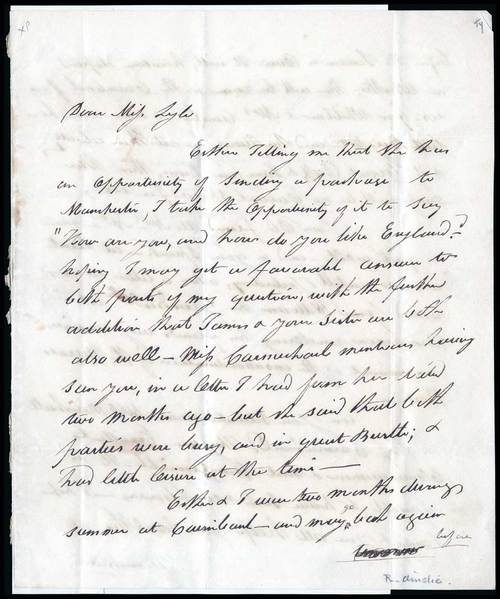 Dear Miss Lyle
Esther Telling me that she has
an opportunity of sending a package to
Manchester, I take the opportunity of it to say
"How are you, and how do you like England"?
hoping I may get a favorable answer to
both parts of my question, with the further
addition that James & your Sister are both
also well – Miss Carmichael mentions having
seen you, in a letter I had from her
two months ago – but she said that both
parties were busy, and in great Bustle; &
had little leisure at the time –
Esther & I were two months during
summer at – and may go back again
before
R. Ainslie.